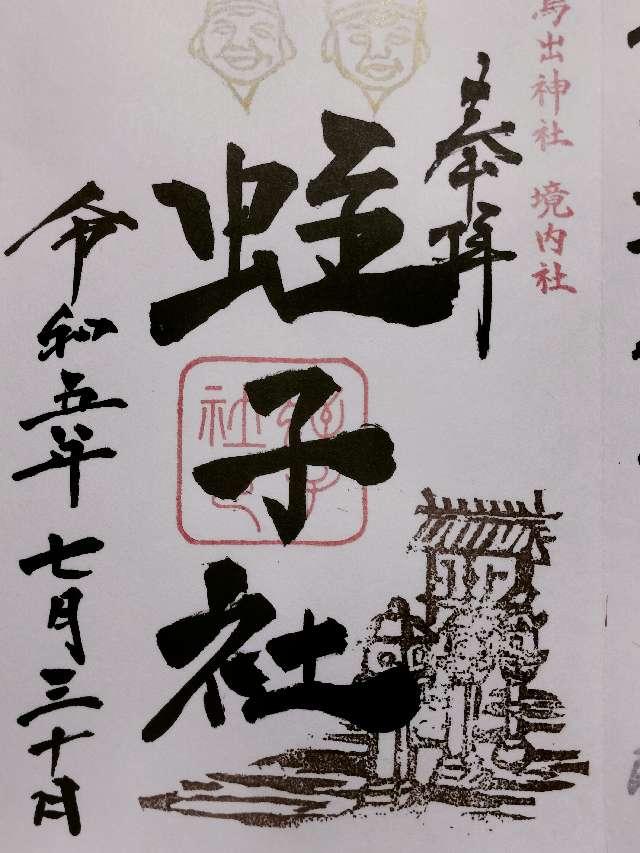 出神社 境内社
奉拝
蛭子社
令和五年七月三十日